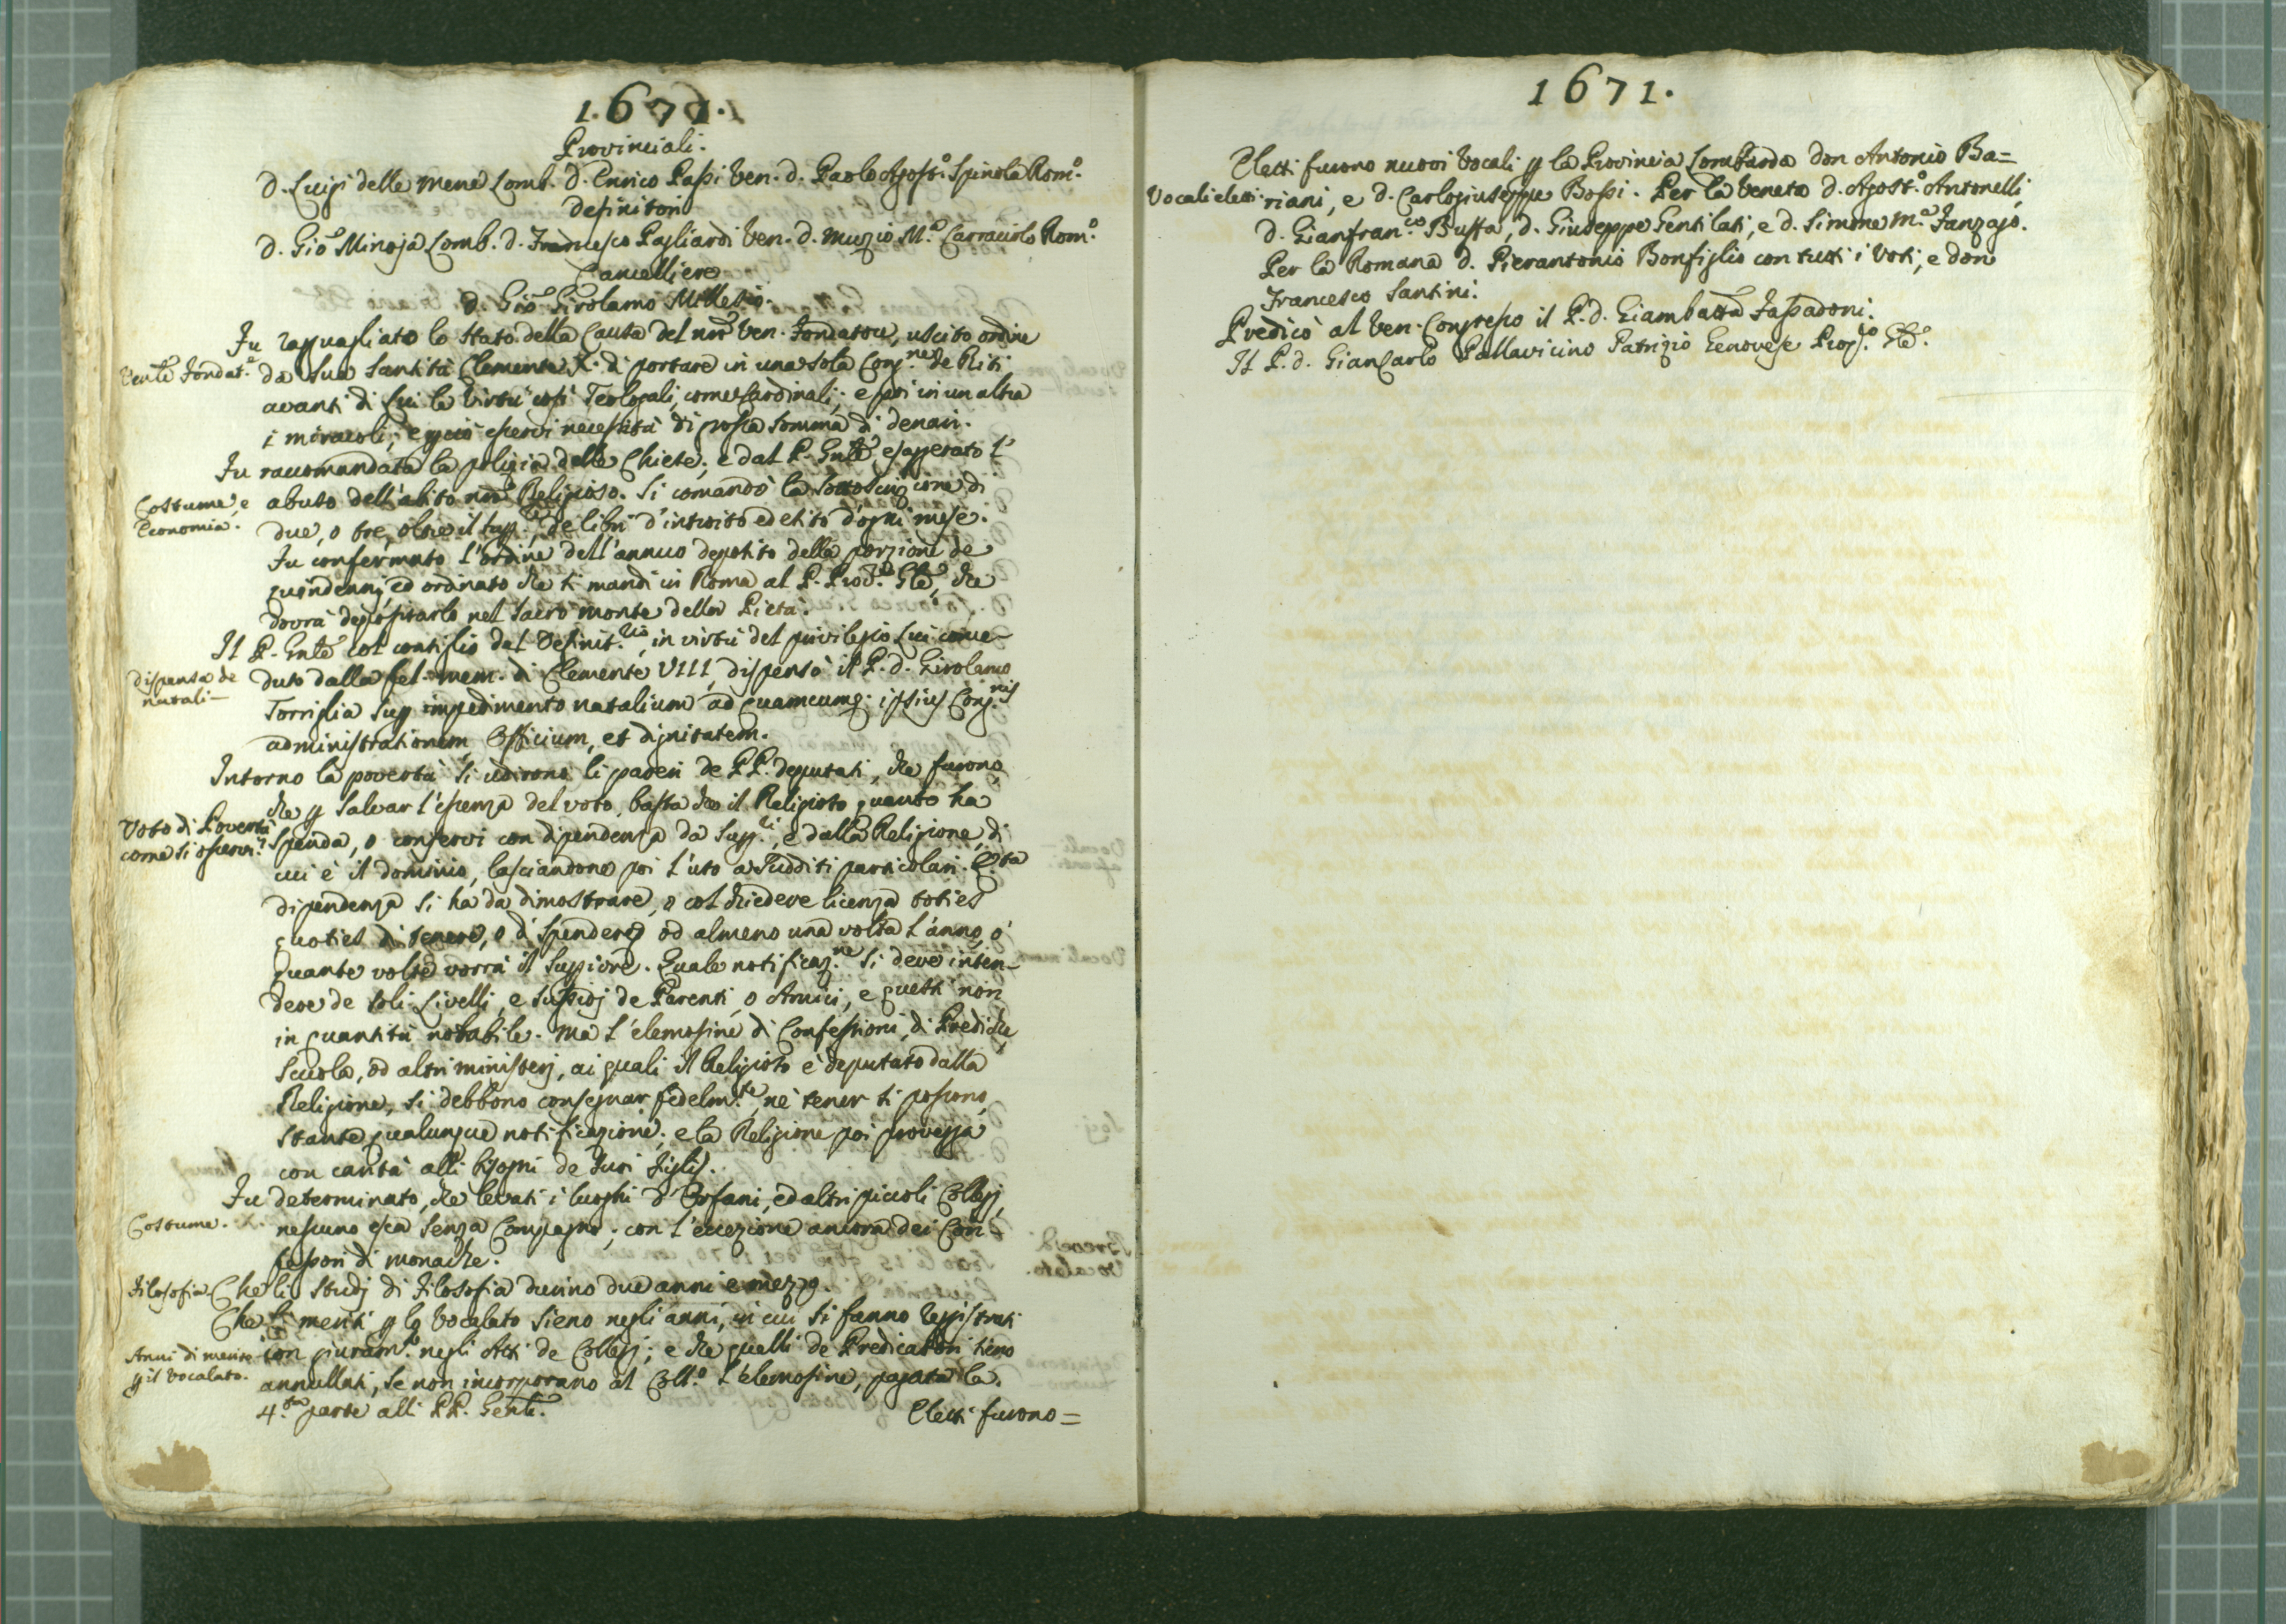 1671.
Provinciali.
D. Luigi delle Mene Lomb. D. Enrico Passi Ven. D. Paolo Agost. Spinola Rom.o
Definitori
D. Gio Minoja Lomb. D. Francesco Pagliardi Ven. D. Muzio M.a Carracciolo Rom.o
Cancelliere
D. Gio Girolamo
Fu ragguagliato lo stato della Causa del nro Ven. Fondatore, uscito ordine
Venle Fondat.e
da Sua Santità Clemente X. di portare in una sola Cong.ne de Riti
avanti di Lui le Virtù così Teologali, come Cardinali; e poi in un altra
i miracoli; e perciò esservi necessità di grossa somma di denari.
Fu racomandata la polizia delle Chiese; e dal P. Gnle esagerato l'
Costume, e
Economia.
abuso dell'abito nro Religioso. Si comandò la sottoscrizione di
due, o tre, oltre il Sup.re, de libri d'introito ed esito d'ogni mese.
Fu confermato l'ordine dell'annuo deposito della porzione de
quindennj, ed ordinato che si mandi in Roma al P. Proc.re Gle, che
dovrà depositarlo nel Sacro Monte della Pietà.
Il P. Gnle col consiglio del Definit.rio, in virtù del privilegio Lui conce-
Dispensa de
natali-
duto dalla fel. mem. di Clemente VIII, dispensò il P. D. Girolamo
Torriglia sup impedimento natalium ad quamcumq. ipsius Cong.nis
administrationem, Officium, et dignitatem.
Intorno la povertà si udirono li pareri de PP. deputati, che furono,
che p salvar l'essenza del voto, basta che il Religioso quanto ha
Voto di Povertà
come si osservi?
spenda, o conservi con dipendenza da Supp.ri, e dalla Religione, di
cui è il dominio, lasciandone poi l'uso a Sudditi particolari. Q.sta
dipendenza si ha da dimostrare, o col chiedere licenza toties
quoties di tenere, o di spendere, od almeno una volta l'anno, o
quante volte vorrà il Suppiore. Quale notificaz.ne si deve inten-
dere de soli Livelli, e sussidj de Parenti, o Amici, e questi non
in quantità notabile. Ma l'elemosine di Confessioni, di Prediche,
Scuola, od altri ministerj, ai quali il Religioso è deputato dalla
Religione, si debbono consegnar fedelm.te, nè tener si possono,
stante qualunque notificazione; e la Religione poi provegga
con carità alli bisogni de suoi Figlj.
Fu determinato, che levati i luoghi d'Orfani, ed altri piccoli Collegj,
Costume.
nessuno esca senza Compagno; con l'eccezione ancora dei Con-
fessori di Monache.
Filosofia.
Che li Studj di Filosofia durino due anni e mezzo.
Che li meriti p lo Vocalato sieno negli anni, in cui si fanno reggistrati
Anni di merito
p il Vocalato.
con giuram.to negli Atti de Collegj; e che quelli de Predicatori sieno
annullati, se non incorporano al Coll.o l'elemosine, pagata la
4.ta parte alli PP. Genli.
Eletti furono=
1671.
Eletti furono nuovi Vocali p la Provincia Lombarda Don Antonio Ba=
Vocali eletti
riani, e D. Carlogiuseppe Bossi. Per la Veneta D. Agost.o Antonelli,
D. Gianfran.co Buffa, D. Giuseppe Gentilati, e D. Simone M.a Fanzago.
Per la Romana D. Pierantonio Bonfiglio con tutti i Voti; e don
Francesco Santini.
Predicò al Ven. Congresso il P. D. Giambatta Fassadoni.
Il P. D. Giancarlo Pallavicino Patrizio Genovese Prop.to Gle.